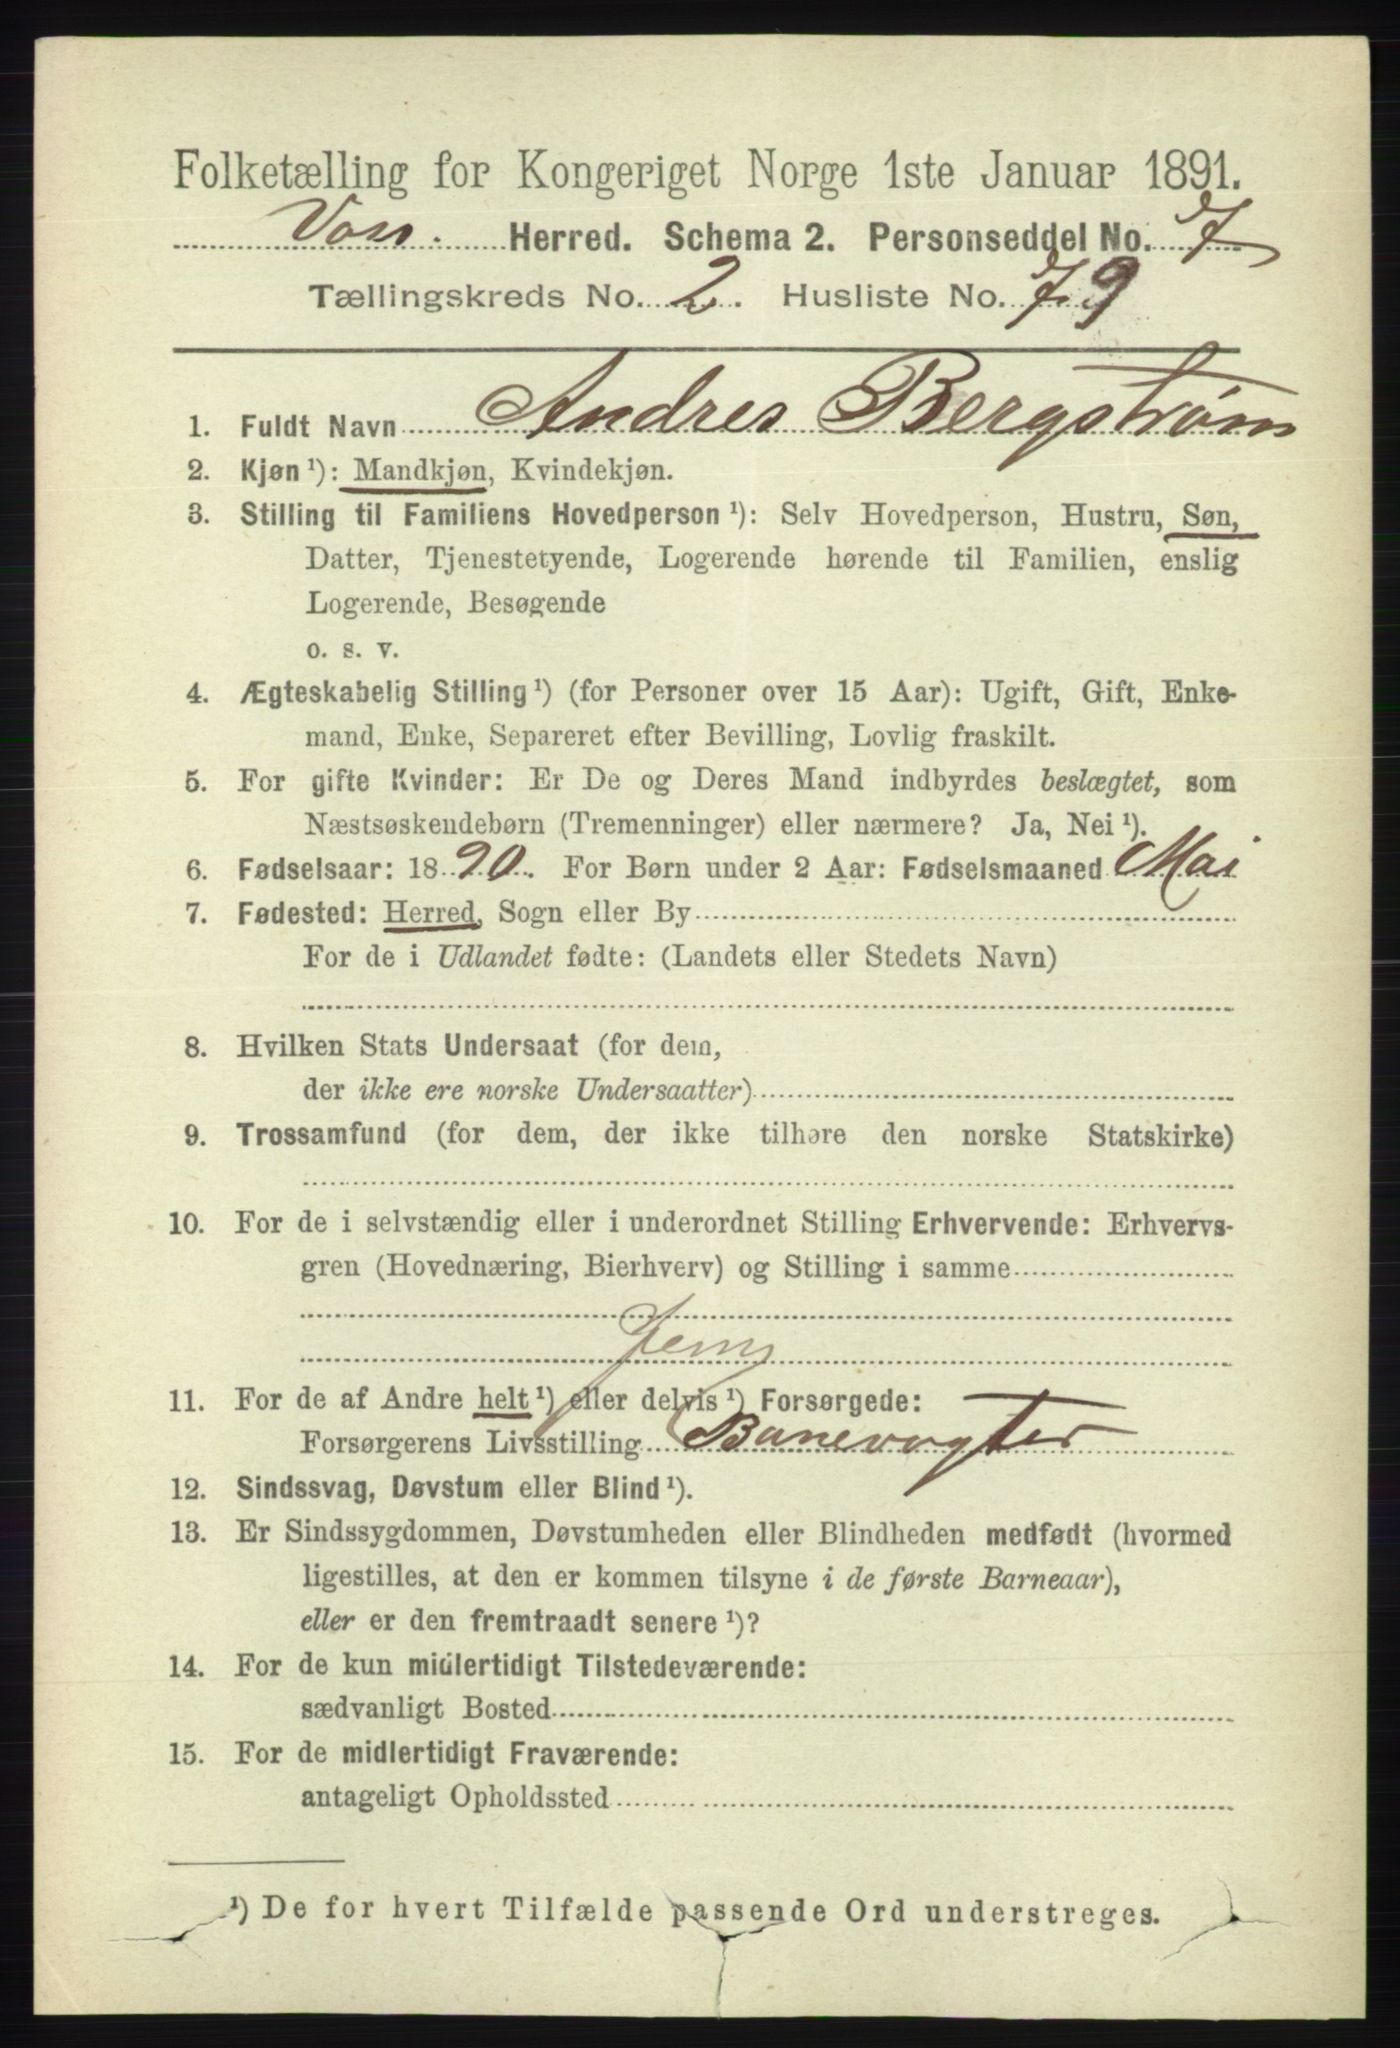 Folketælling for Kongeriget Norge 1ste Januar 1891.
Voss. Herred. Schema 2. Personseddel No. 7
Tællingskreds No. 2. Husliste No. 79
1. Fuldt Navn Andres Bergstrøm
2. Kjøn ¹): Mandkjøn, Kvindekjøn.
3. Stilling til Familiens Hovedperson ¹): Selv Hovedperson, Hustru, Søn,
Datter, Tjenestetyende, Logerende hørende til Familien, enslig
Logerende, Besøgende
o. s. v.
4. Ægteskabelig Stilling ¹) (for Personer over 15 Aar): Ugift, Gift, Enke-
mand, Enke, Separeret efter Bevilling, Lovlig fraskilt.
5. For gifte Kvinder: Er De og Deres Mand indbyrdes beslægtet, som
Næstsøskendebørn (Tremenninger) eller nærmere? Ja, Nei ¹).
6. Fødselsaar: 1890. For Børn under 2 Aar: Fødselsmaaned Mai
7. Fødested: Herred, Sogn eller By
For de i Udlandet fødte: (Landets eller Stedets Navn)
8. Hvilken Stats Undersaat (for dem,
der ikke ere norske Undersaatter)
9. Trossamfund (for dem, der ikke tilhøre den norske Statskirke)
10. For de i selvstændig eller i underordnet Stilling Erhvervende: Erhvervs-
gren (Hovednæring, Bierhverv) og Stilling i samme
11. For de af Andre helt ¹) eller delvis ¹) Forsørgede:
Forsørgerens Livsstilling Banevogter
12. Sindssvag, Døvstum eller Blind ¹).
13. Er Sindssygdommen, Døvstumheden eller Blindheden medfødt (hvormed
ligestilles, at den er kommen tilsyne i de første Barneaar),
eller er den fremtraadt senere ¹)?
14. For de kun midlertidigt Tilstedeværende:
sædvanligt Bosted
15. For de midlertidigt Fraværende:
antageligt Opholdssted
¹) De for hvert Tilfælde passende Ord understreges.